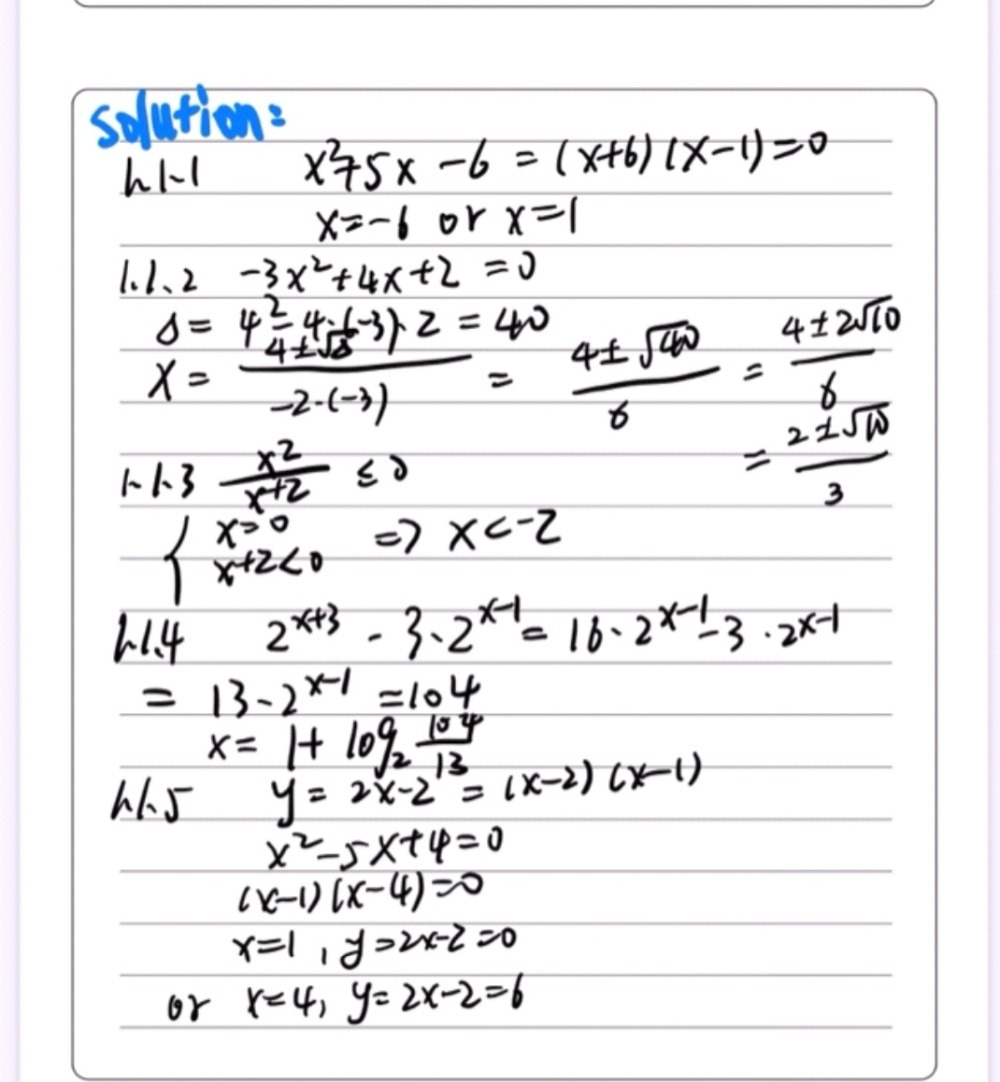 solution:
1.1.1 x²+5x-6 = (x+6)(x-1)=0
x=-6 or x=1
1.1.2 -3x²+4x+2 =0
Δ= 4²-4·(-3)·2 = 40
X = (4±√Δ)/(-2·(-3)) = (4±√40)/6 = (4±2√10)/6
= (2±√10)/3
1.1.3 x²/(x+2) ≤0
{ x=0
x+2<0 => x<-2
1.1.4 2^(x+3) - 3·2^(x-1) = 16·2^(x-1) -3·2^(x-1)
= 13·2^(x-1) =104
x= 1+ log₂ 104/13
1.1.5 y= 2x-2 = (x-2)(x-1)
x²-5x+4=0
(x-1)(x-4)=0
x=1, y=2x-2=0
or x=4, y=2x-2=6